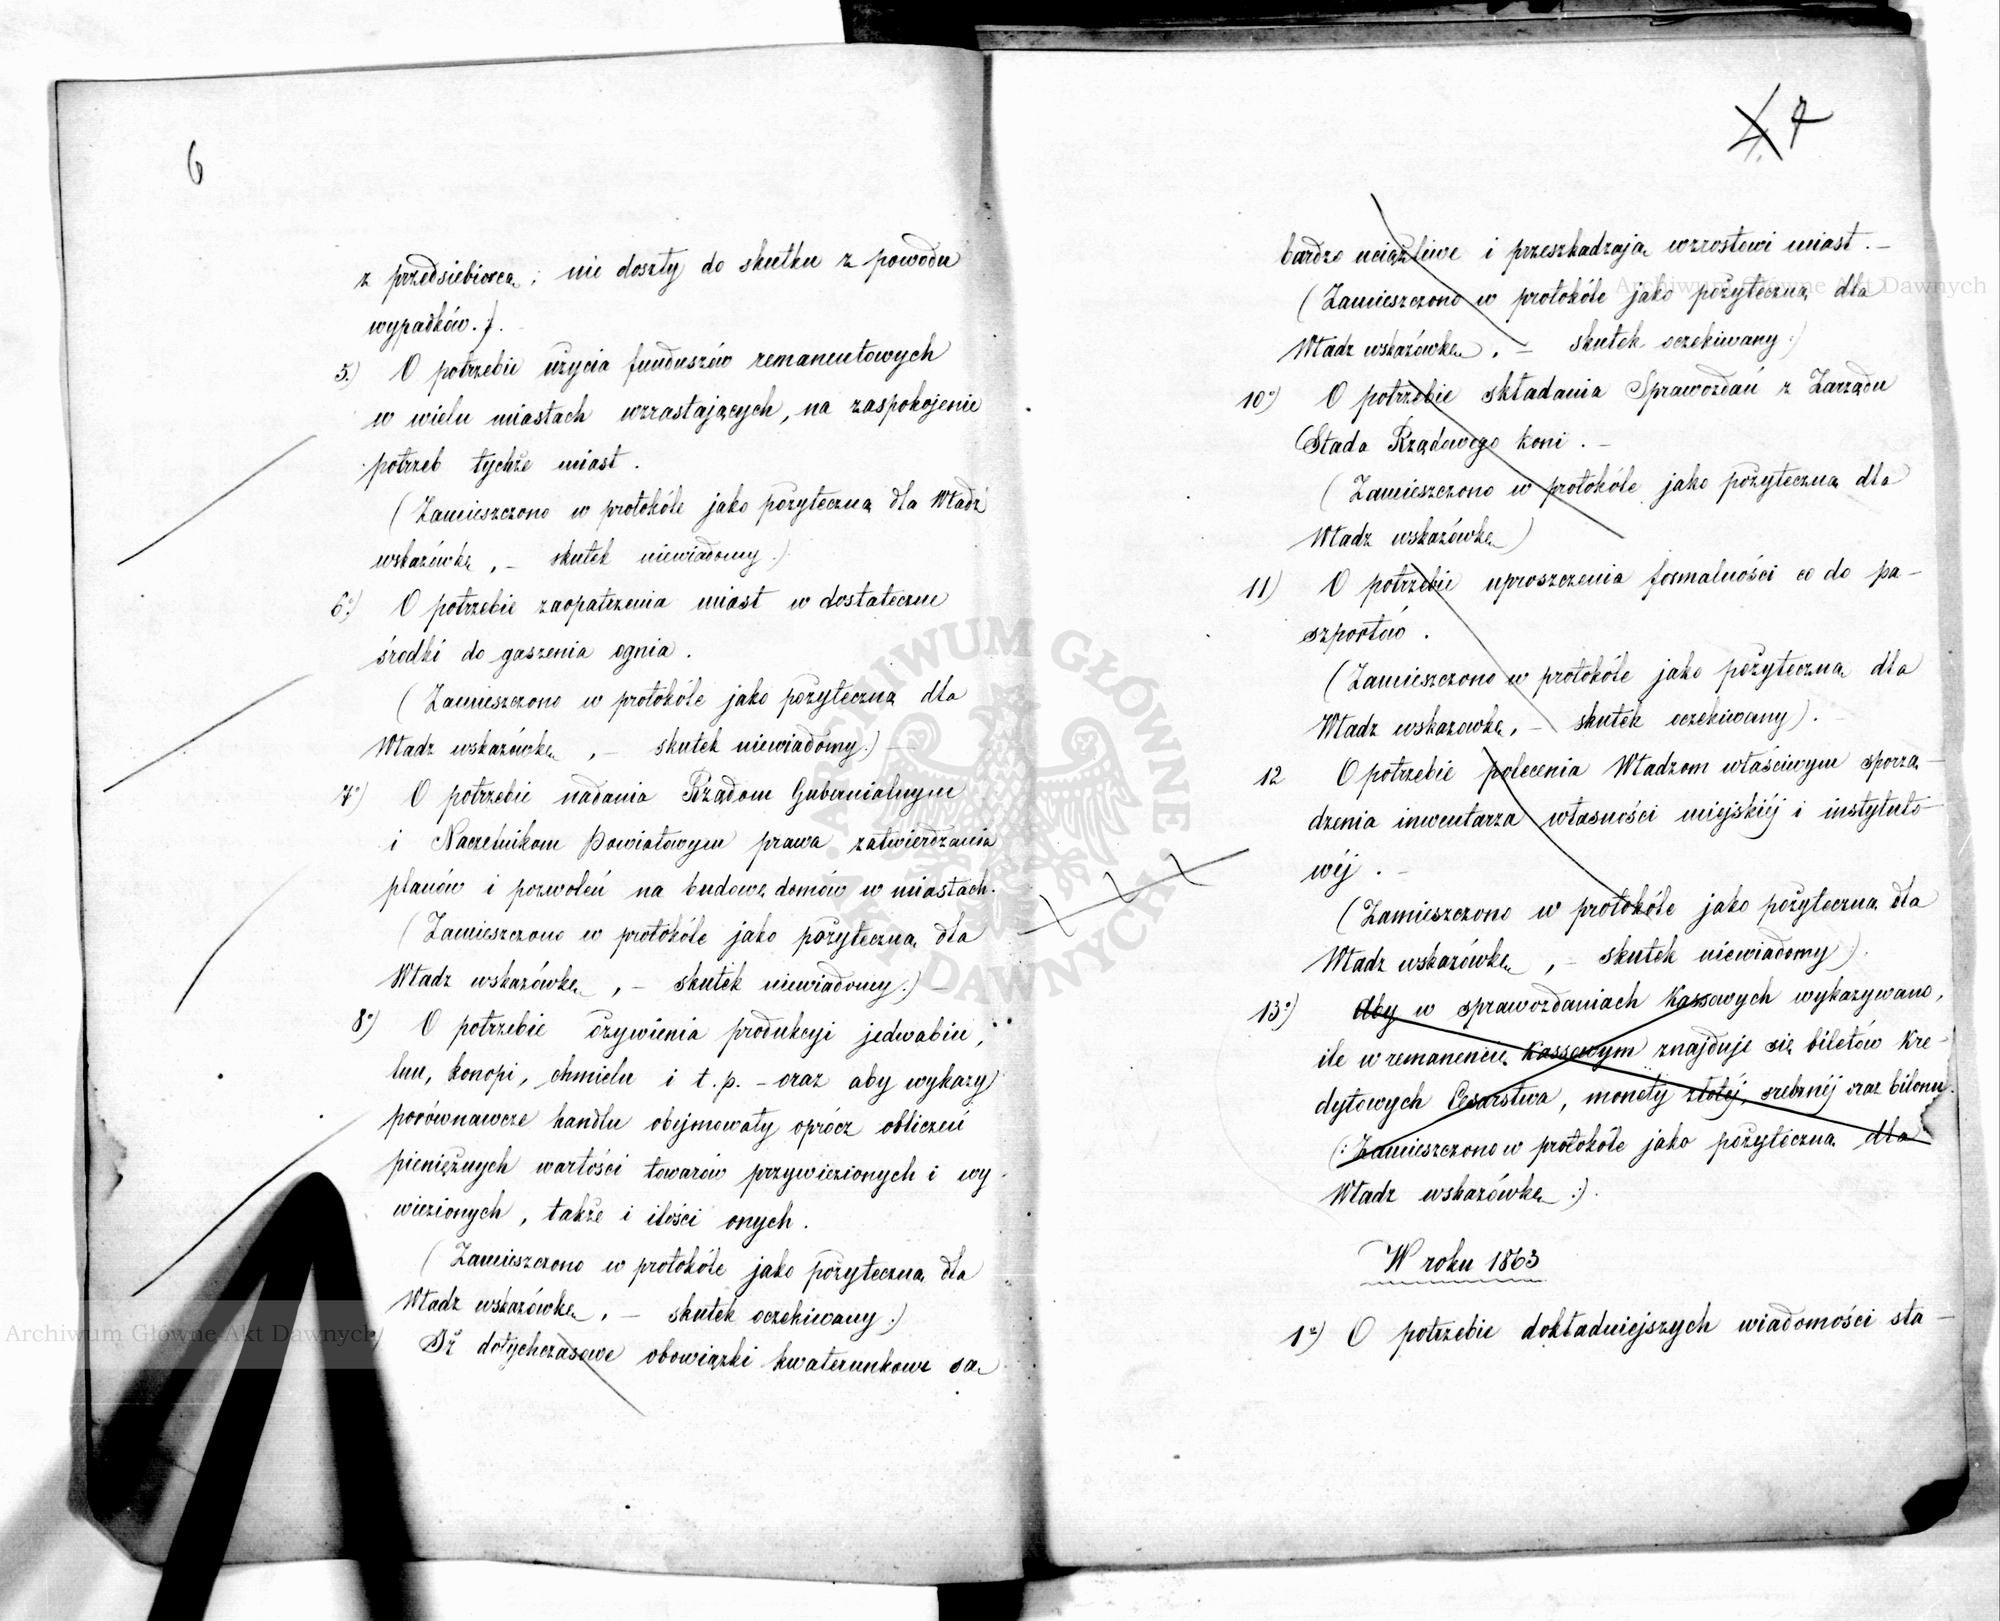 6
z przedsiebiorcą; nie doszły do skutku z powodu
wypadków.).
5.) O potrzebie użycia funduszów remanentowych
w wielu miastach wzrastających, na zaspokojenie
potrzeb tychże miast.
(Zamieszczono w protokóle jako pożyteczną dla Władz
wskazówkę, – skutek niewiadomy.)
6º) O potrzebie zaopatrzenia miast w dostateczne
środki do gaszenia ognia.
(Zamieszczono w protokóle jako pożyteczną dla
Władz wskazówkę, – skutek niewiadomy.) –
7º) O potrzebie nadania Rządom Gubernialnym
i Naczelnikom Powiatowym prawa zatwierdzania
planów i pozwoleń na budowę domów w miastach.
(Zamieszczono w protokóle jako pożyteczną dla
Władz wskazówkę, – skutek niewiadomy.) –
8º) O potrzebie ożywienia produkcyi jedwabiu,
lnu, konopi, chmielu i t. p. – oraz aby wykazy
porównawcze handlu obejmowały oprócz obliczeń
pieniężnych wartości towarów przywiezionych i wy-
wiezionych, także i ilości onych.
(Zamieszczono w protokóle jako pożyteczną dla
Władz wskazówkę, – skutek oczekiwany.)
Iż dotychczasowe obowiązki kwaterunkowe są
4. 7
bardzo uciążliwe i przeszkadzają wzrostowi miast. –
(Zamieszczono w protokóle jako pożyteczną dla
Władz wskazówkę, – skutek oczekiwany.)
10º) O potrzebie składania Sprawozdań z Zarządu
Stada Rządowego koni. –
(Zamieszczono w protokóle jako pożyteczną dla
Władz wskazówkę)
11) O potrzebie uproszczenia formalności co do pa-
szportów.
(Zamieszczono w protokóle jako pożyteczną dla
Władz wskazowkę, – skutek oczekiwany).
12 O potrzebie polecenia Władzom właściwym sporzą-
dzenia inwentarza własności miejskiéj i instytuto-
wéj. –
(Zamieszczono w protokóle jako pożyteczną dla
Władz wskazówkę, – skutek niewiadomy).
13º) Aby w sprawozdaniach Kassowych wykazywano,
ile w remanencie Kassowym znajduje się biletów Kre-
dytowych Cesarstwa, monety złotéj, srebrnéj oraz bilonu.
(: Zamieszczono w protokóle jako pożyteczną dla
Władz wskazówkę :).
W roku 1863
1º) O potrzebie dokładniejszych wiadomości sta-
ARCHIWUM GŁÓWNE AKT DAWNYCH
Archiwum Główne Akt Dawnych
Archiwum Główne Akt Dawnych